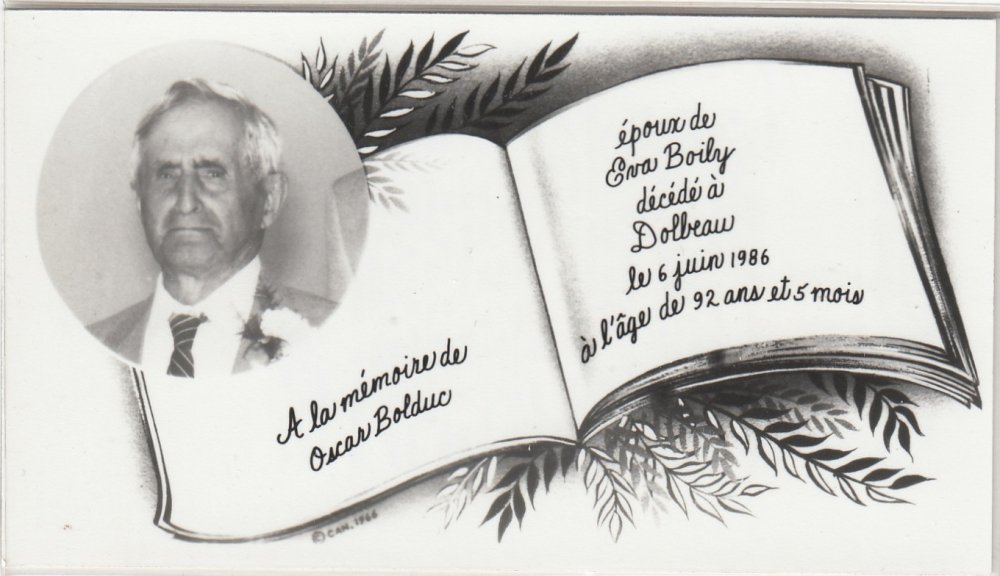 A la mémoire de
Oscar Bolduc
époux de
Eva Boily
décédé à
Dolbeau
le 6 juin 1986
à l'âge de 92 ans et 5 mois
© CAN. 1966